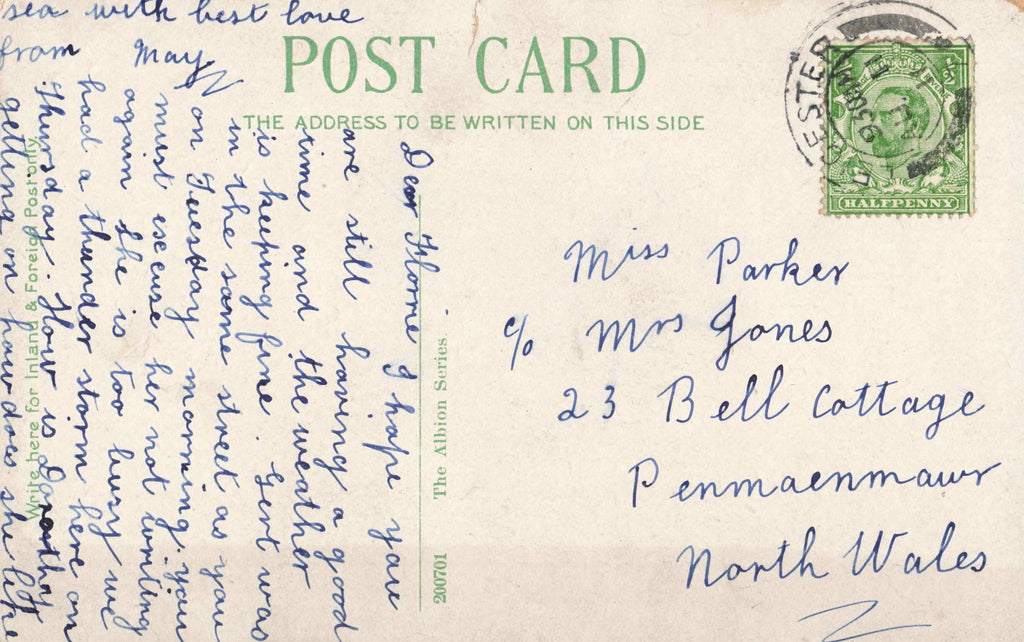 POST CARD
THE ADDRESS TO BE WRITTEN ON THIS SIDE
Dear Florrie I hope you
are still having a good
time and the weather
is keeping fine. Gert was
in the same street as you
on Tuesday morning. you
must excuse her not writing
again she is too busy we
had a thunder storm here on
Thursday. How is Dorothy
getting on how does she like
sea with best love
from May
Write here for Inland & Foreign Post only.
200701 The Albion Series.
HALFPENNY
Miss Parker
c/o Mrs Jones
23 Bell Cottage
Penmaenmawr
North Wales